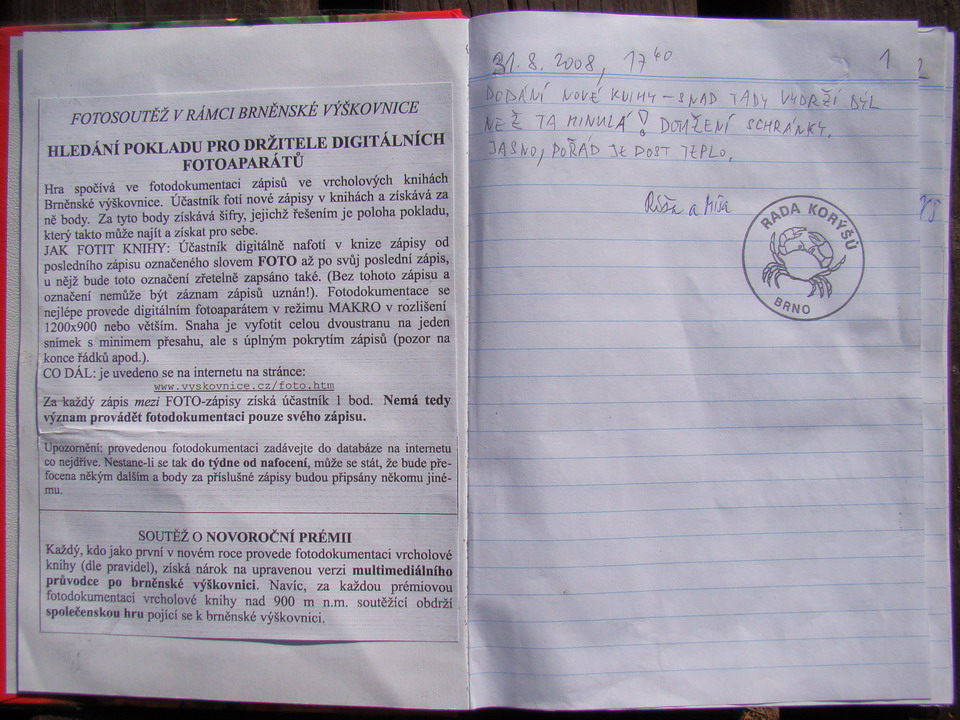 FOTOSOUTĚŽ V RÁMCI BRNĚNSKÉ VÝŠKOVNICE
HLEDÁNÍ POKLADU PRO DRŽITELE DIGITÁLNÍCH
FOTOAPARÁTŮ
Hra spočívá ve fotodokumentaci zápisů ve vrcholových knihách
Brněnské výškovnice. Účastník fotí nové zápisy v knihách a získává za
ně body. Za tyto body získává šifry, jejichž řešením je poloha pokladu,
který takto může najít a získat pro sebe.
JAK FOTIT KNIHY: Účastník digitálně nafotí v knize zápisy od
posledního zápisu označeného slovem FOTO až po svůj poslední zápis,
u nějž bude toto označení zřetelně zapsáno také. (Bez tohoto zápisu a
označení nemůže být záznam zápisů uznán!). Fotodokumentace se
nejlépe provede digitálním fotoaparátem v režimu MAKRO v rozlišení
1200x900 nebo větším. Snaha je vyfotit celou dvoustranu na jeden
snímek s minimem přesahu, ale s úplným pokrytím zápisů (pozor na
konce řádků apod.).
CO DÁL: je uvedeno se na internetu na stránce:
www.vyskovnice.cz/foto.htm
Za každý zápis mezi FOTO-zápisy získá účastník 1 bod. Nemá tedy
význam provádět fotodokumentaci pouze svého zápisu.
Upozornění: provedenou fotodokumentaci zadávejte do databáze na internetu
co nejdříve. Nestane-li se tak do týdne od nafocení, může se stát, že bude pře-
focena někým dalším a body za příslušné zápisy budou připsány někomu jiné-
mu.
SOUTĚŽ O NOVOROČNÍ PRÉMII
Každý, kdo jako první v novém roce provede fotodokumentaci vrcholové
knihy (dle pravidel), získá nárok na upravenou verzi multimediálního
průvodce po brněnské výškovnici. Navíc, za každou prémiovou
fotodokumentaci vrcholové knihy nad 900 m n.m. soutěžící obdrží
společenskou hru pojící se k brněnské výškovnici.
31.8.2008, 17 40
1
DODÁNÍ NOVÉ KNIHY – SNAD TADY VYDRŽÍ DÝL
NEŽ TA MINULÁ! DOUŽENÍ SCHRÁNKY.
JASNO, POŘÁD JE DOST TEPLO.
Ríša a Míša
RADA KORÝŠŮ
BRNO
2